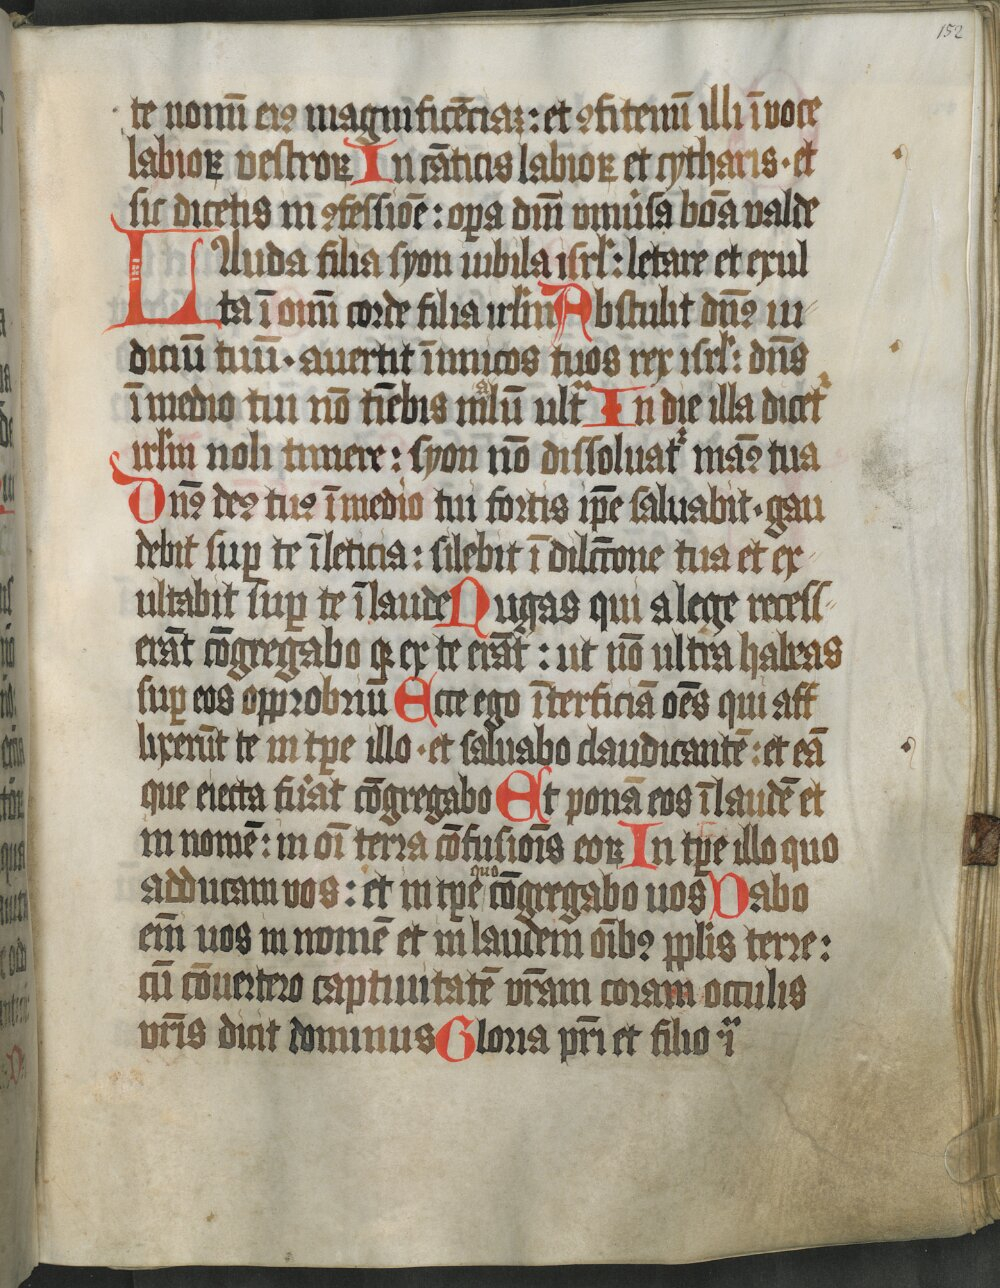 152
te nomī eiꝰ magnificēciaꝫ : et ꝯfitemī illi ī voce
labioꝝ vestroꝝ In cāticis labioꝝ et cytharis · et
sic dicetis in ꝯfessiōe : oꝑa dm̄ vniũsa bōa valde
LAuda filia syon iubila isrl̄ : letare et exul
ta ī omī corde filia irlm̄ Abstulit dn̄ꝰ iu
diciū tuū · auertit īimicos tuos rex isrl̄ : dn̄s
ī medio tui nō tīebis malū ultᵃ In die illa dicetʳ
irlm̄ noli timere : syon nō dissoluātʳ manꝰ tua
Dn̄ꝰ deꝰ tuꝰ ī medio tui fortis ip̄e saluabit · gau
debit suꝑ te ī leticia : silebit ī dilcc̄one tua et ex
ultabit suꝑ te ī laude Nugas qui a lege recess
erāt cōgregabo qꝫ ex te erāt : ut nō ultra habeas
suꝑ eos oꝓpbriū Ecce ego īterficiā oēs qui aff
lixerūt te in tp̄e illo · et saluabo claudicantē : et eā
que eiecta fūat cōgregabo Et ponā eos ī laudē et
in nomē : in oī terra cōfusiōis eoꝝ In tp̄e illo quo
adducam vos : et in tp̄e quo cōgregabo uos Dabo
em̄ uos in nomē et in laudem oīb ꝰ ppl̄is terre :
cū cōuertero captiuitatē vr̄am coram occulis
vr̄is dicit dominus Gloria pr̄i et filio ī